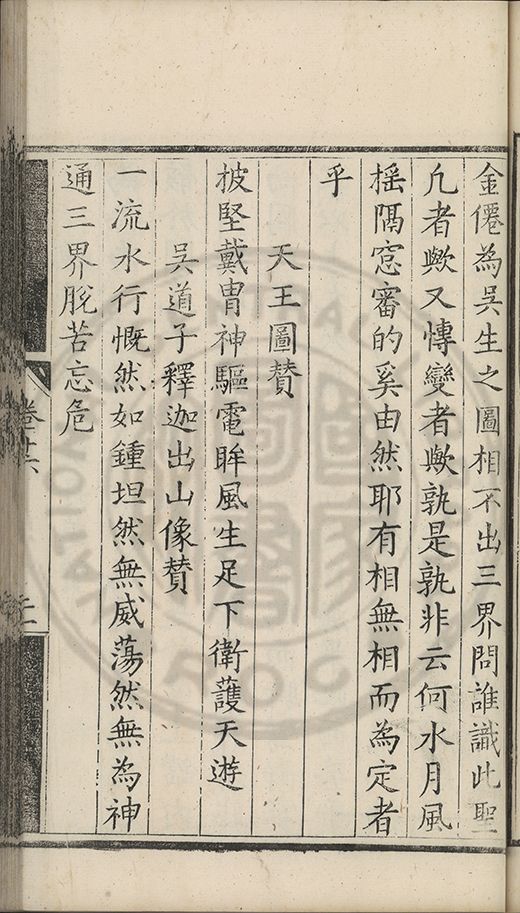 金僊為吳生之圖相不出三界問誰識此聖
九者歟又慱變者歟孰是孰非云何水月風
揺隔窓審的奚由然耶有相無相而為定者
乎
天王圖贊
披堅戴冑神驅電眸風生足下衛護天遊
吳道子釋迦出山像賛
一流水行慨然如鍾坦然無威蕩然無為神
通三界脫苦忘危
卷十六
二